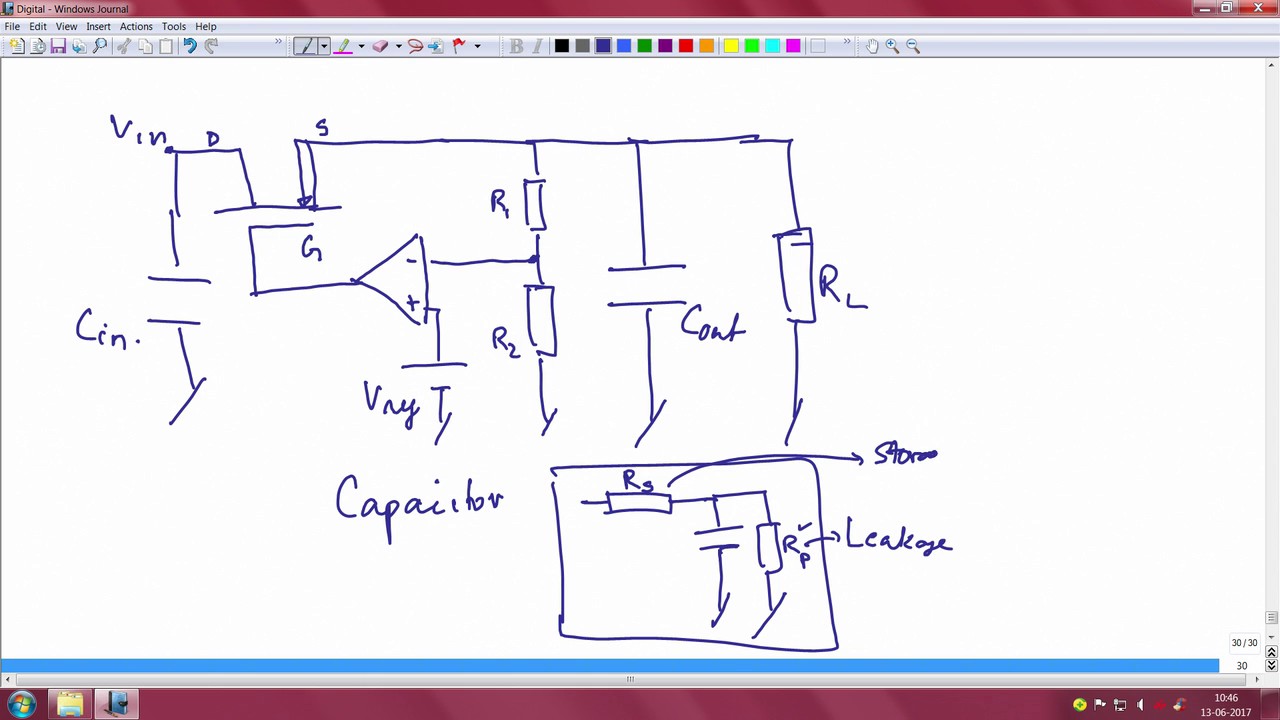 Digital - Windows Journal
File Edit View Insert Actions Tools Help
B I
Vin D S
R1
G
-
+
Cin.
R2
Cout
RL
Rs
Capacitor
Rp Leakage
30 / 30
30
10:46
13-06-2017